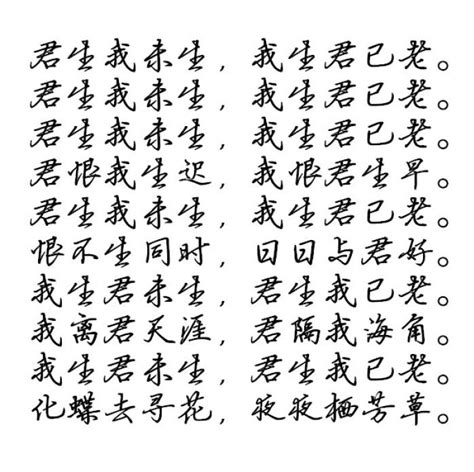 君生我未生，我生君已老。
君生我未生，我生君已老。
君生我未生，我生君已老。
君恨我生迟，我恨君生早。
君生我未生，我生君已老。
恨不生同时，日日与君好。
我生君未生，君生我已老。
我离君天涯，君隔我海角。
我生君未生，君生我已老。
化蝶去寻花，夜夜栖芳草。